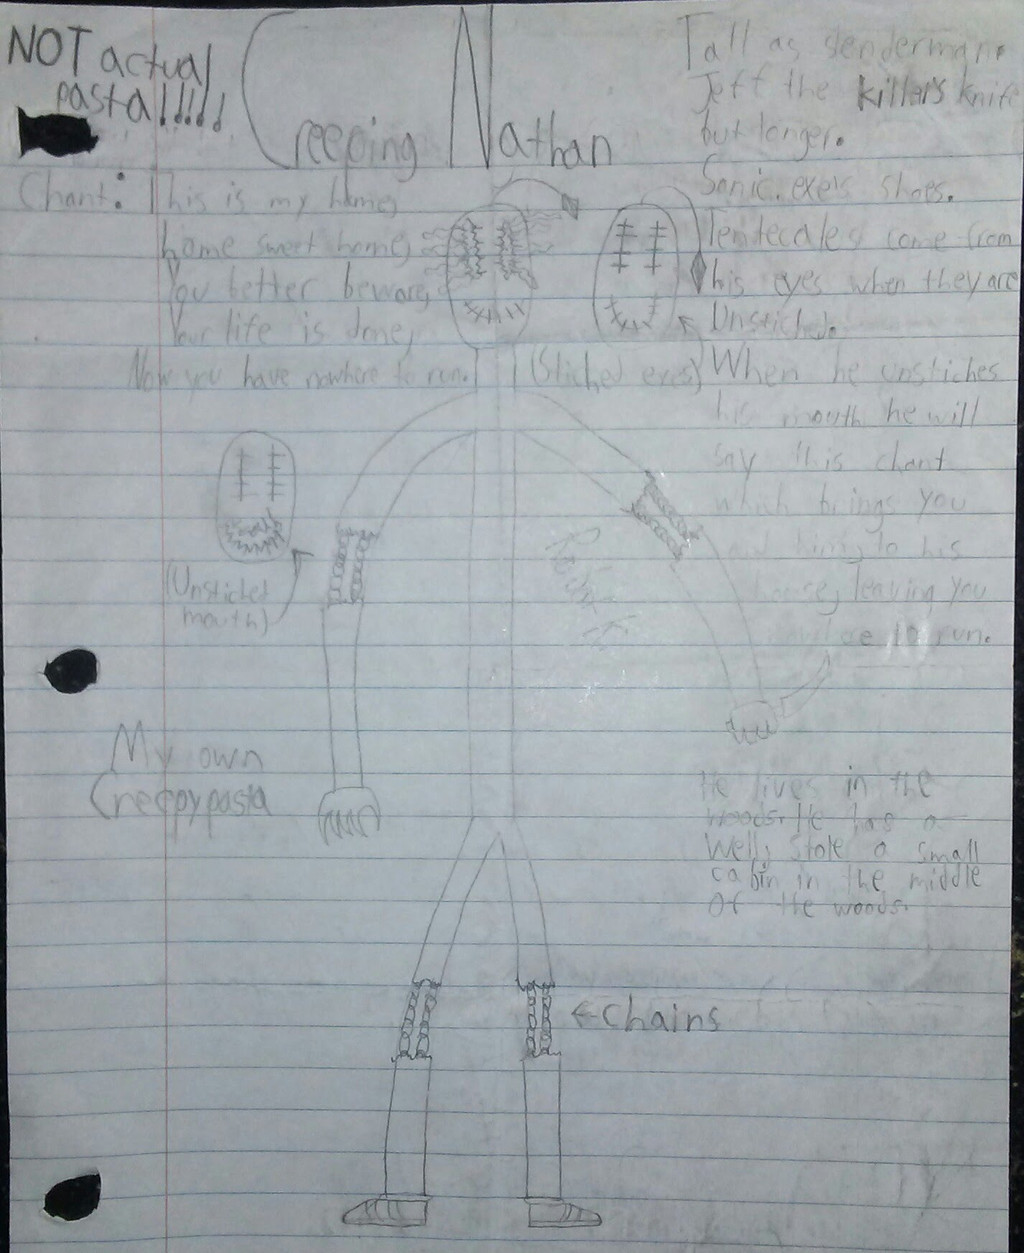 NOT actual
pasta!!!!!
Creeping Nathan
Tall as slenderman.
Jeff the killer's knife
but longer.
Sonic.exe's shoes.
Tentecales come from
his eyes when they are
Unstiched.
When he unstiches
his mouth he will
say this chant
which brings you
and him to his
leaving you
to run.
Chant: This is my home,
home sweet home,
You better beware,
Your life is done,
Now you have nowhere to run.
(Stiched eyes)
(Unstiched
mouth)
My own
Creepypasta
He lives in the
woods. He has a
Well, stole a small
cabin in the middle
Of the woods.
←Chains